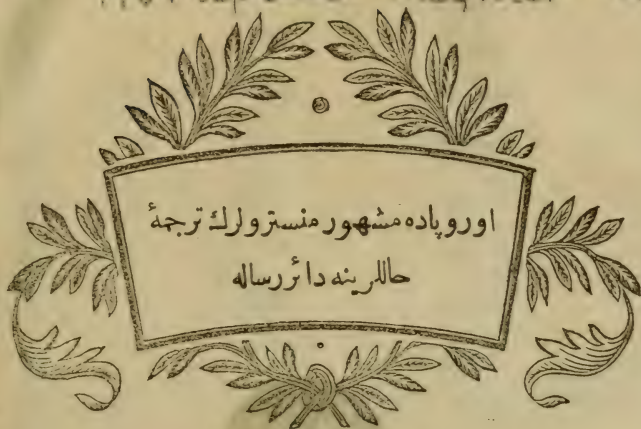 اوروپاده مشهور منسترولرك ترجمهٔ
حاللرينه دائر رساله